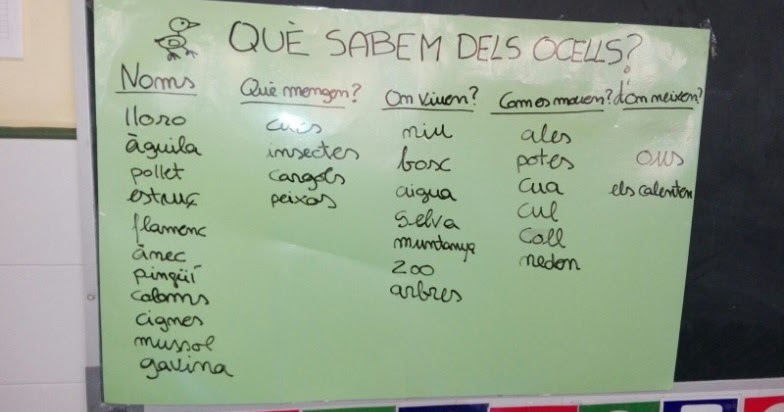 QUÈ SABEM DELS OCELLS?
Noms
lloro
àguila
pollet
estruç
flamenc
ànec
pingüí
coloms
cignes
mussol
gavina
Què mengen?
cucs
insectes
cargols
peixos
On viuen?
niu
bosc
aigua
selva
muntanya
zoo
arbres
Com es mouen?
ales
potes
cua
cul
coll
neden
d'on neixen?
ous
els calenten